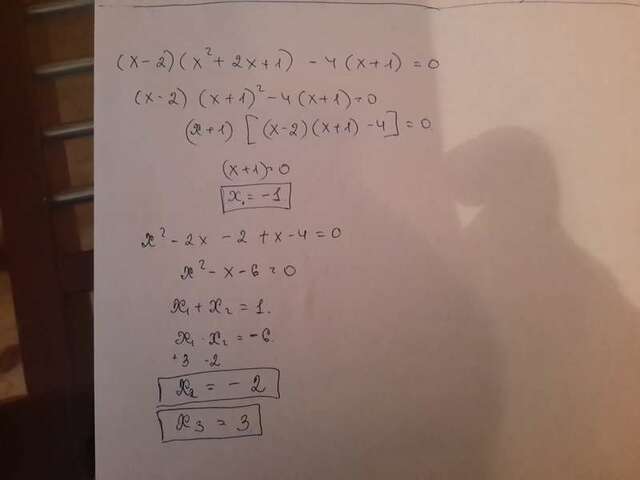 (x-2)(x²+2x+1) -4(x+1)=0
(x-2) (x+1)²-4(x+1)=0
(x+1) [(x-2)(x+1)-4]=0
(x+1)=0
x₁=-1
x²-2x-2+x-4=0
x²-x-6=0
x₁+x₂=1.
x₁·x₂=-6.
+3 -2
x₂=-2
x₃=3